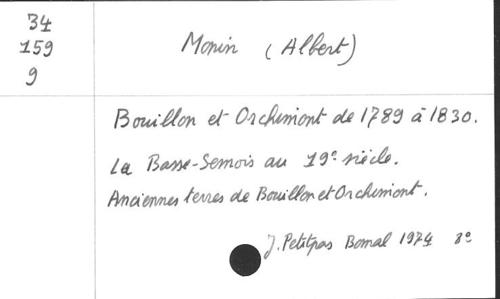 34
159
9
Monin (Albert)
Bouillon et Orchimont de 1789 à 1830.
La Basse-Semois au 19e siècle.
Anciennes terres de Bouillon et Orchimont.
J. Petitpas Bomal 1974 8°